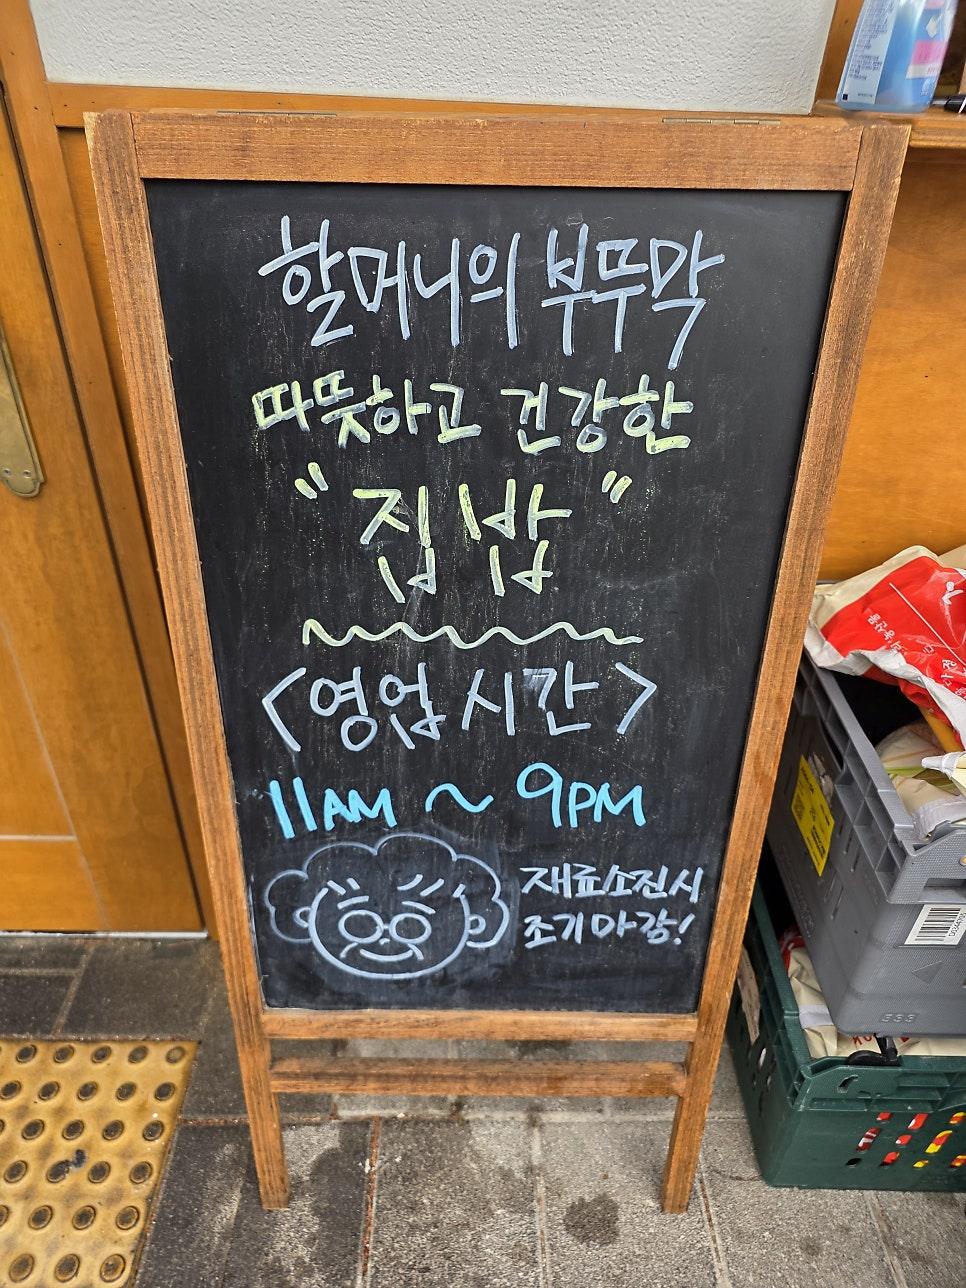 할머니의 부뚜막
따뜻하고 건강한
"집밥"
<영업시간>
11AM ~ 9PM
재료소진시
조기마감!